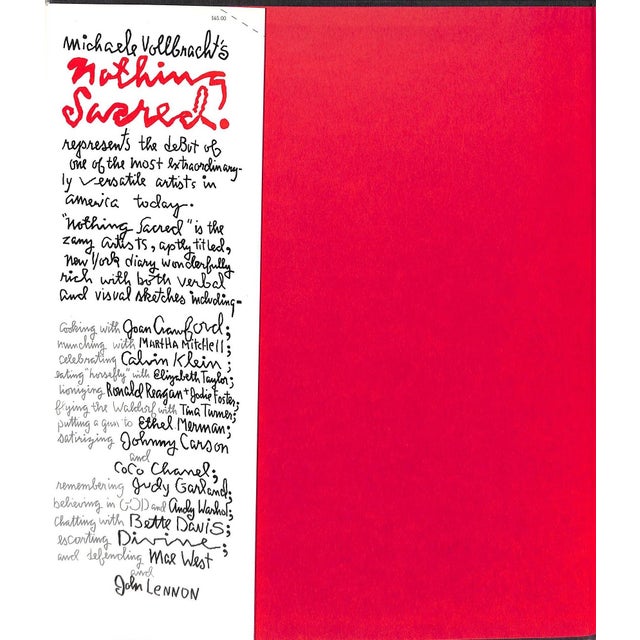 $65.00
michaele Vollbracht's
Nothing
Sacred!
represents the debut of
one of the most extraordinary-
ly versatile artists in
america today.
"Nothing Sacred" is the
zany artists, aptly titled,
new York diary wonderfully
rich with both verbal
and visual sketches including-
Cooking with Joan Crawford;
munching with MARTHA MitcHell;
celebrating Calvin Klein;
eating "horsefly" with Elizabeth Taylor;
lionizing Ronald Reagan + Jodie Foster;
flying the Waldorf with Tina Turner;
putting a gun to Ethel Merman;
satirizing Johnny Carson
and
CoCo Chanel;
remembering Judy Garland;
believing in GOD and Andy Warhol;
chatting with Bette Davis;
escorting Divine;
and defending Mae West
and
John LENNON